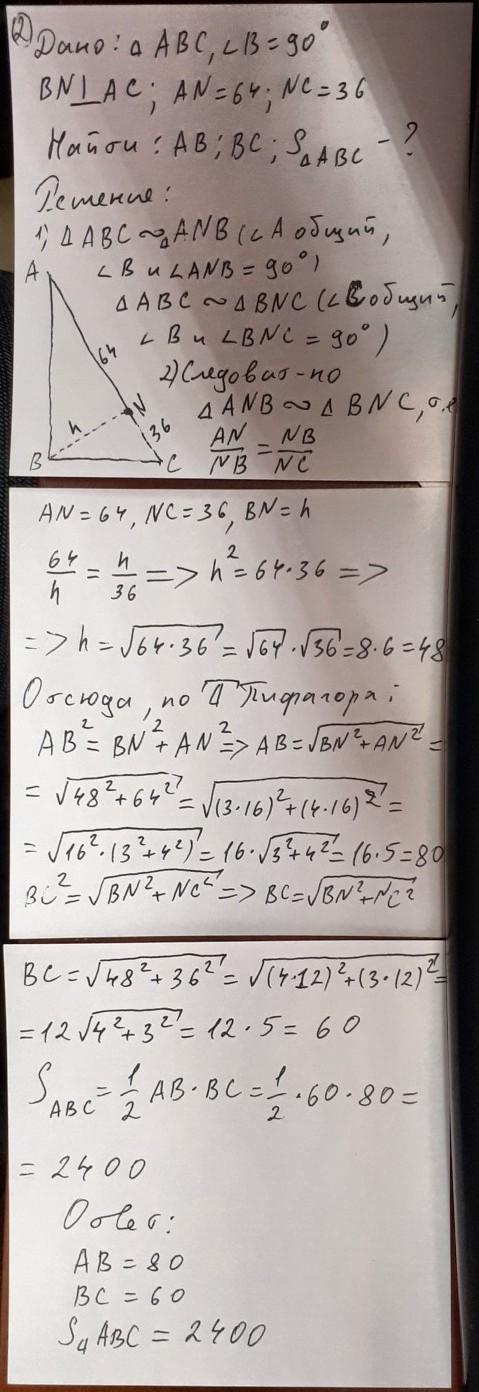 2) Дано: △ ABC, ∠B = 90°
BN⊥AC; AN=64; NC=36
Найти: AB; BC; S△ABC - ?
Решение:
1) △ ABC ∾ △ANB (∠A общий,
∠B и ∠ANB = 90°)
△ ABC ∾ △ BNC (∠C общий,
∠ B и ∠BNC = 90°)
2) Следоват-но
△ ANB ∾ △ BNC, т.е
AN/NB = NB/NC
A
64
N
h
36
B
C
AN = 64, NC = 36, BN = h
64/h = h/36 => h² = 64·36 =>
=> h = √(64·36) = √64 · √36 = 8·6 = 48
Отсюда, по Т Пифагора:
AB² = BN² + AN² => AB = √(BN² + AN²) =
= √(48² + 64²) = √((3·16)² + (4·16)²) =
= √(16²·(3²+4²)) = 16·√(3²+4²) = 16·5 = 80
BC² = √(BN² + NC²) => BC = √(BN² + NC²)
BC = √(48² + 36²) = √((4·12)² + (3·12)²) =
= 12 √(4² + 3²) = 12 · 5 = 60
S ABC = 1/2 AB · BC = 1/2 · 60 · 80 =
= 2400
Ответ:
AB = 80
BC = 60
S△ABC = 2400